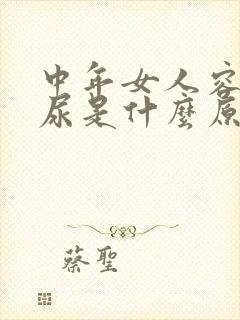 中年女人容
尿是什麼原
蔡聖